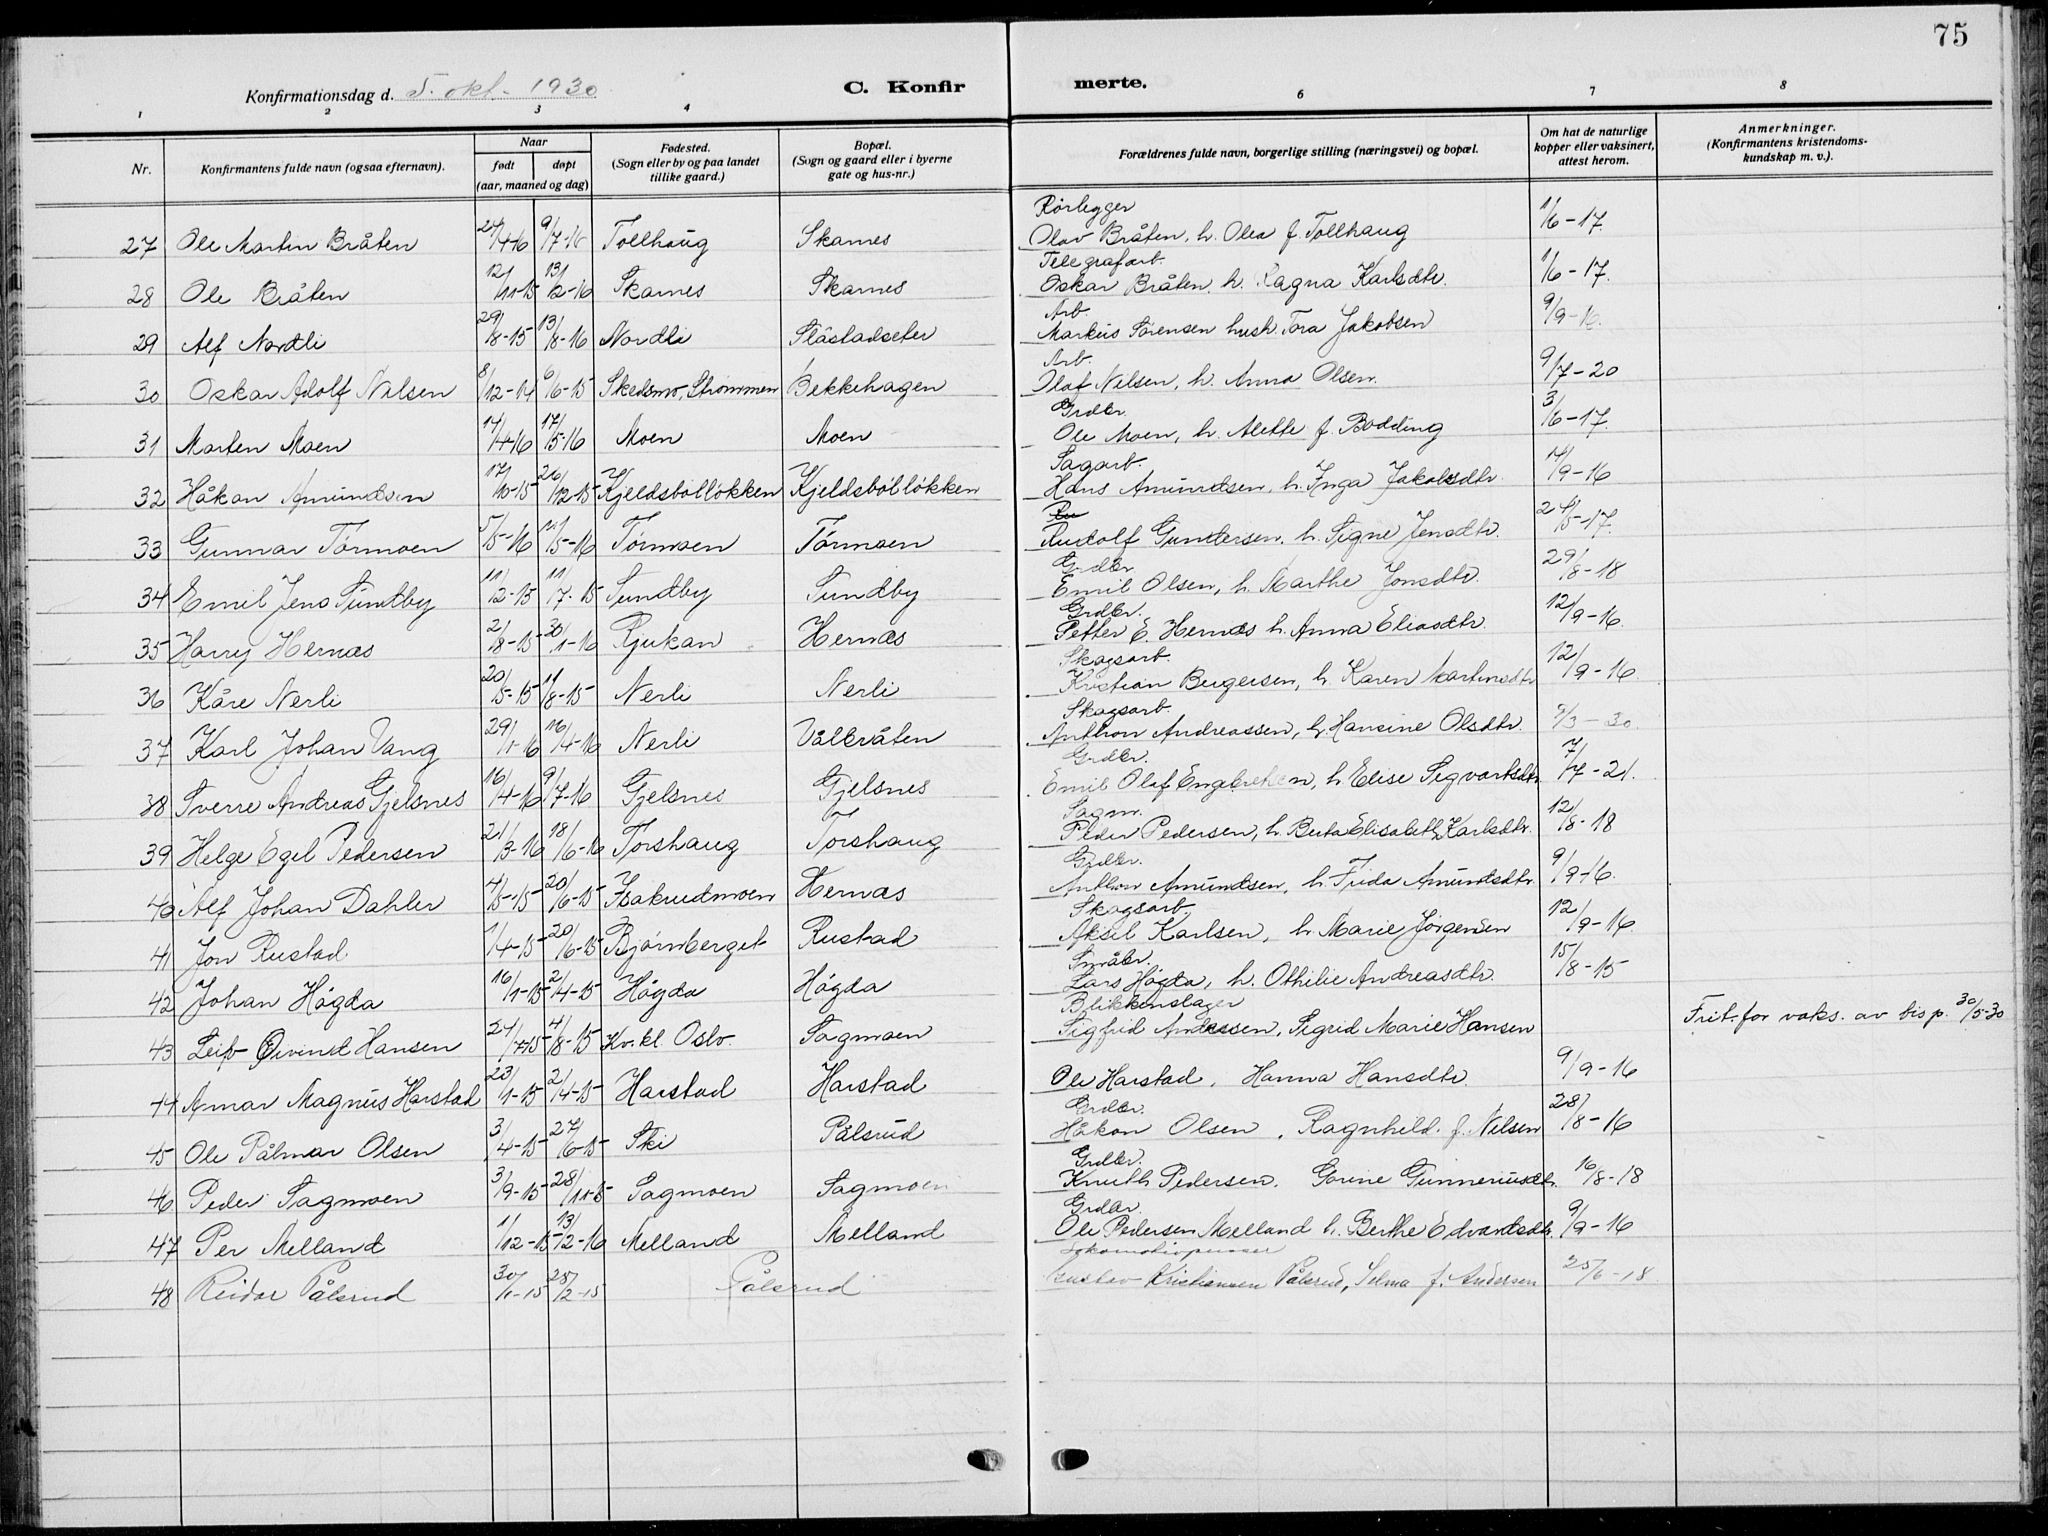 75
Konfirmationsdag d. 5. okt. 1930
C. Konfir
merte.
1 2 3 4 6 7 8
Nr.
Konfirmantens fulde navn (ogsaa efternavn).
Naar
født døpt
(aar, maaned og dag)
Fødested.
(Sogn eller by og paa landet
tillike gaard.)
Bopæl.
(Sogn og gaard eller i byerne
gate og hus-nr.)
Forældrenes fulde navn, borgerlige stilling (næringsvei) og bopæl.
Om hat de naturlige
kopper eller vaksinert,
attest herom.
Anmerkninger.
(Konfirmantens kristendoms-
kundskap m. v.).
Rörlegger
27 Ole Martin Bråten 24/4-16 9/7-16 Tollhaug Skarnes Olav Bråten, h. Olea f. Tollhaug 1/6-17.
Telegrafarb.
28 Ole Bråten 12/11-15 13/2-16 Skarnes Skarnes Oskar Bråten, h. Ragna Karlsdtr. 1/6-17.
Arb.
29 Alf Nordli 29/8-15 13/8-16 Nordli Slåstadseter Markus Sörensen hush. Tora Jakobsen 9/9-16.
Arb.
30 Oskar Adolf Nilsen 8/12-14 6/6-15 Skedsmo, Strömmen Bekkehagen Olaf Nilsen, h. Anna Olsen. 9/7-20
Grdbr.
31 Morten Moen 14/4-16 17/5-16 Moen Moen Ole Moen, h. Alette f. Bodding 3/6-17.
Sagarb.
32 Håkon Amundsen 17/10-15 26/12-15 Kjeldsbölløkken Kjeldsbölløkken Hans Amundsen, h. Inga Jakobsdtr. 14/9-16
33 Gunnar Törmoen 5/5-16 Törmoen Törmoen Rudolf Gundersen, h. Signe Jensdtr. 24/5-17.
Grdbr.
34 Emil Jens Sundby 11/2-15 Sundby Sundby Emil Olsen, h. Marthe Jonsdtr. 29/8-18
Grdbr.
35 Harry Hernæs 2/8-15 30/1-16 Rjukan Hernæs Petter E. Hernæs h. Anna Eliasdtr. 12/9-16.
Skogsarb.
36 Kåre Nerli 20/5-15 11/8-15 Nerli Nerli Kristian Bergersen, h. Karen Martinsdtr 12/9-16.
Skogsarb.
37 Karl Johan Vang 29/1-16 16/4-16 Nerli Vålbråten Anthon Andreassen, h. Hansine Olsdtr. 8/3-30.
Grdbr.
38 Sverre Andreas Gjelsnes 16/4-16 9/7-16 Gjelsnes Gjelsnes Emil Olaf Engebretsen, h. Elise Sigvartsdtr 7/7-21.
Sagm.
39 Helge Egel Pedersen 21/3-16 18/6-16 Torshaug Torshaug Peder Pedersen, h. Berta Elisabeth Karlsdtr. 12/8-18
Grdbr.
40 Alf Johan Dahler 4/5-15 20/6-15 Hakrudmoen Hernæs Anthon Amundsen, h. Frida Amundsdtr. 9/9-16.
Skogsarb.
41 Jon Rustad 1/4-15 20/6-15 Bjørnberget Rustad Aksel Karlsen, h. Marie Jörgensen 12/9-16.
Småbr.
42 Johan Högda 16/1-15 2/4-15 Högda Högda Lars Högda, h. Othilie Andreasdtr. 15/8-15
Blikkenslager
43 Leif Øivind Hansen 24/4-15 4/8-15 Kv. kl. Oslo. Sagmoen Sigfrid Andressen, Sigrid Marie Hansen Frit. for vaks. av bisp. 30/5-30
44 Arnar Magnus Harstad 23/1-15 2/4-15 Harstad Harstad Ole Harstad, Hanna Hansdtr. 9/9-16
Grdbr.
45 Ole Pålmar Olsen 3/4-15 27/6-15 Ski Pålsrud Håkon Olsen, Ragnhild. f. Nilsen 28/8-16
Grdbr.
46 Peder Sagmoen 3/9-15 28/11-15 Sagmoen Sagmoen Knuth Pedersen. Gorine Gunneriusdtr. 16/8-18
Grdbr.
47 Per Melland 1/12-15 13/2-16 Melland Melland Ole Pedersen Melland h. Berthe Edvardsdtr. 9/9-16
Lokomotivpusser
48 Reidar Pålsrud 30/1-15 28/2-15 Pålsrud Gustav Kristiansen Pålsrud, Selma f. Andersen 25/6-18